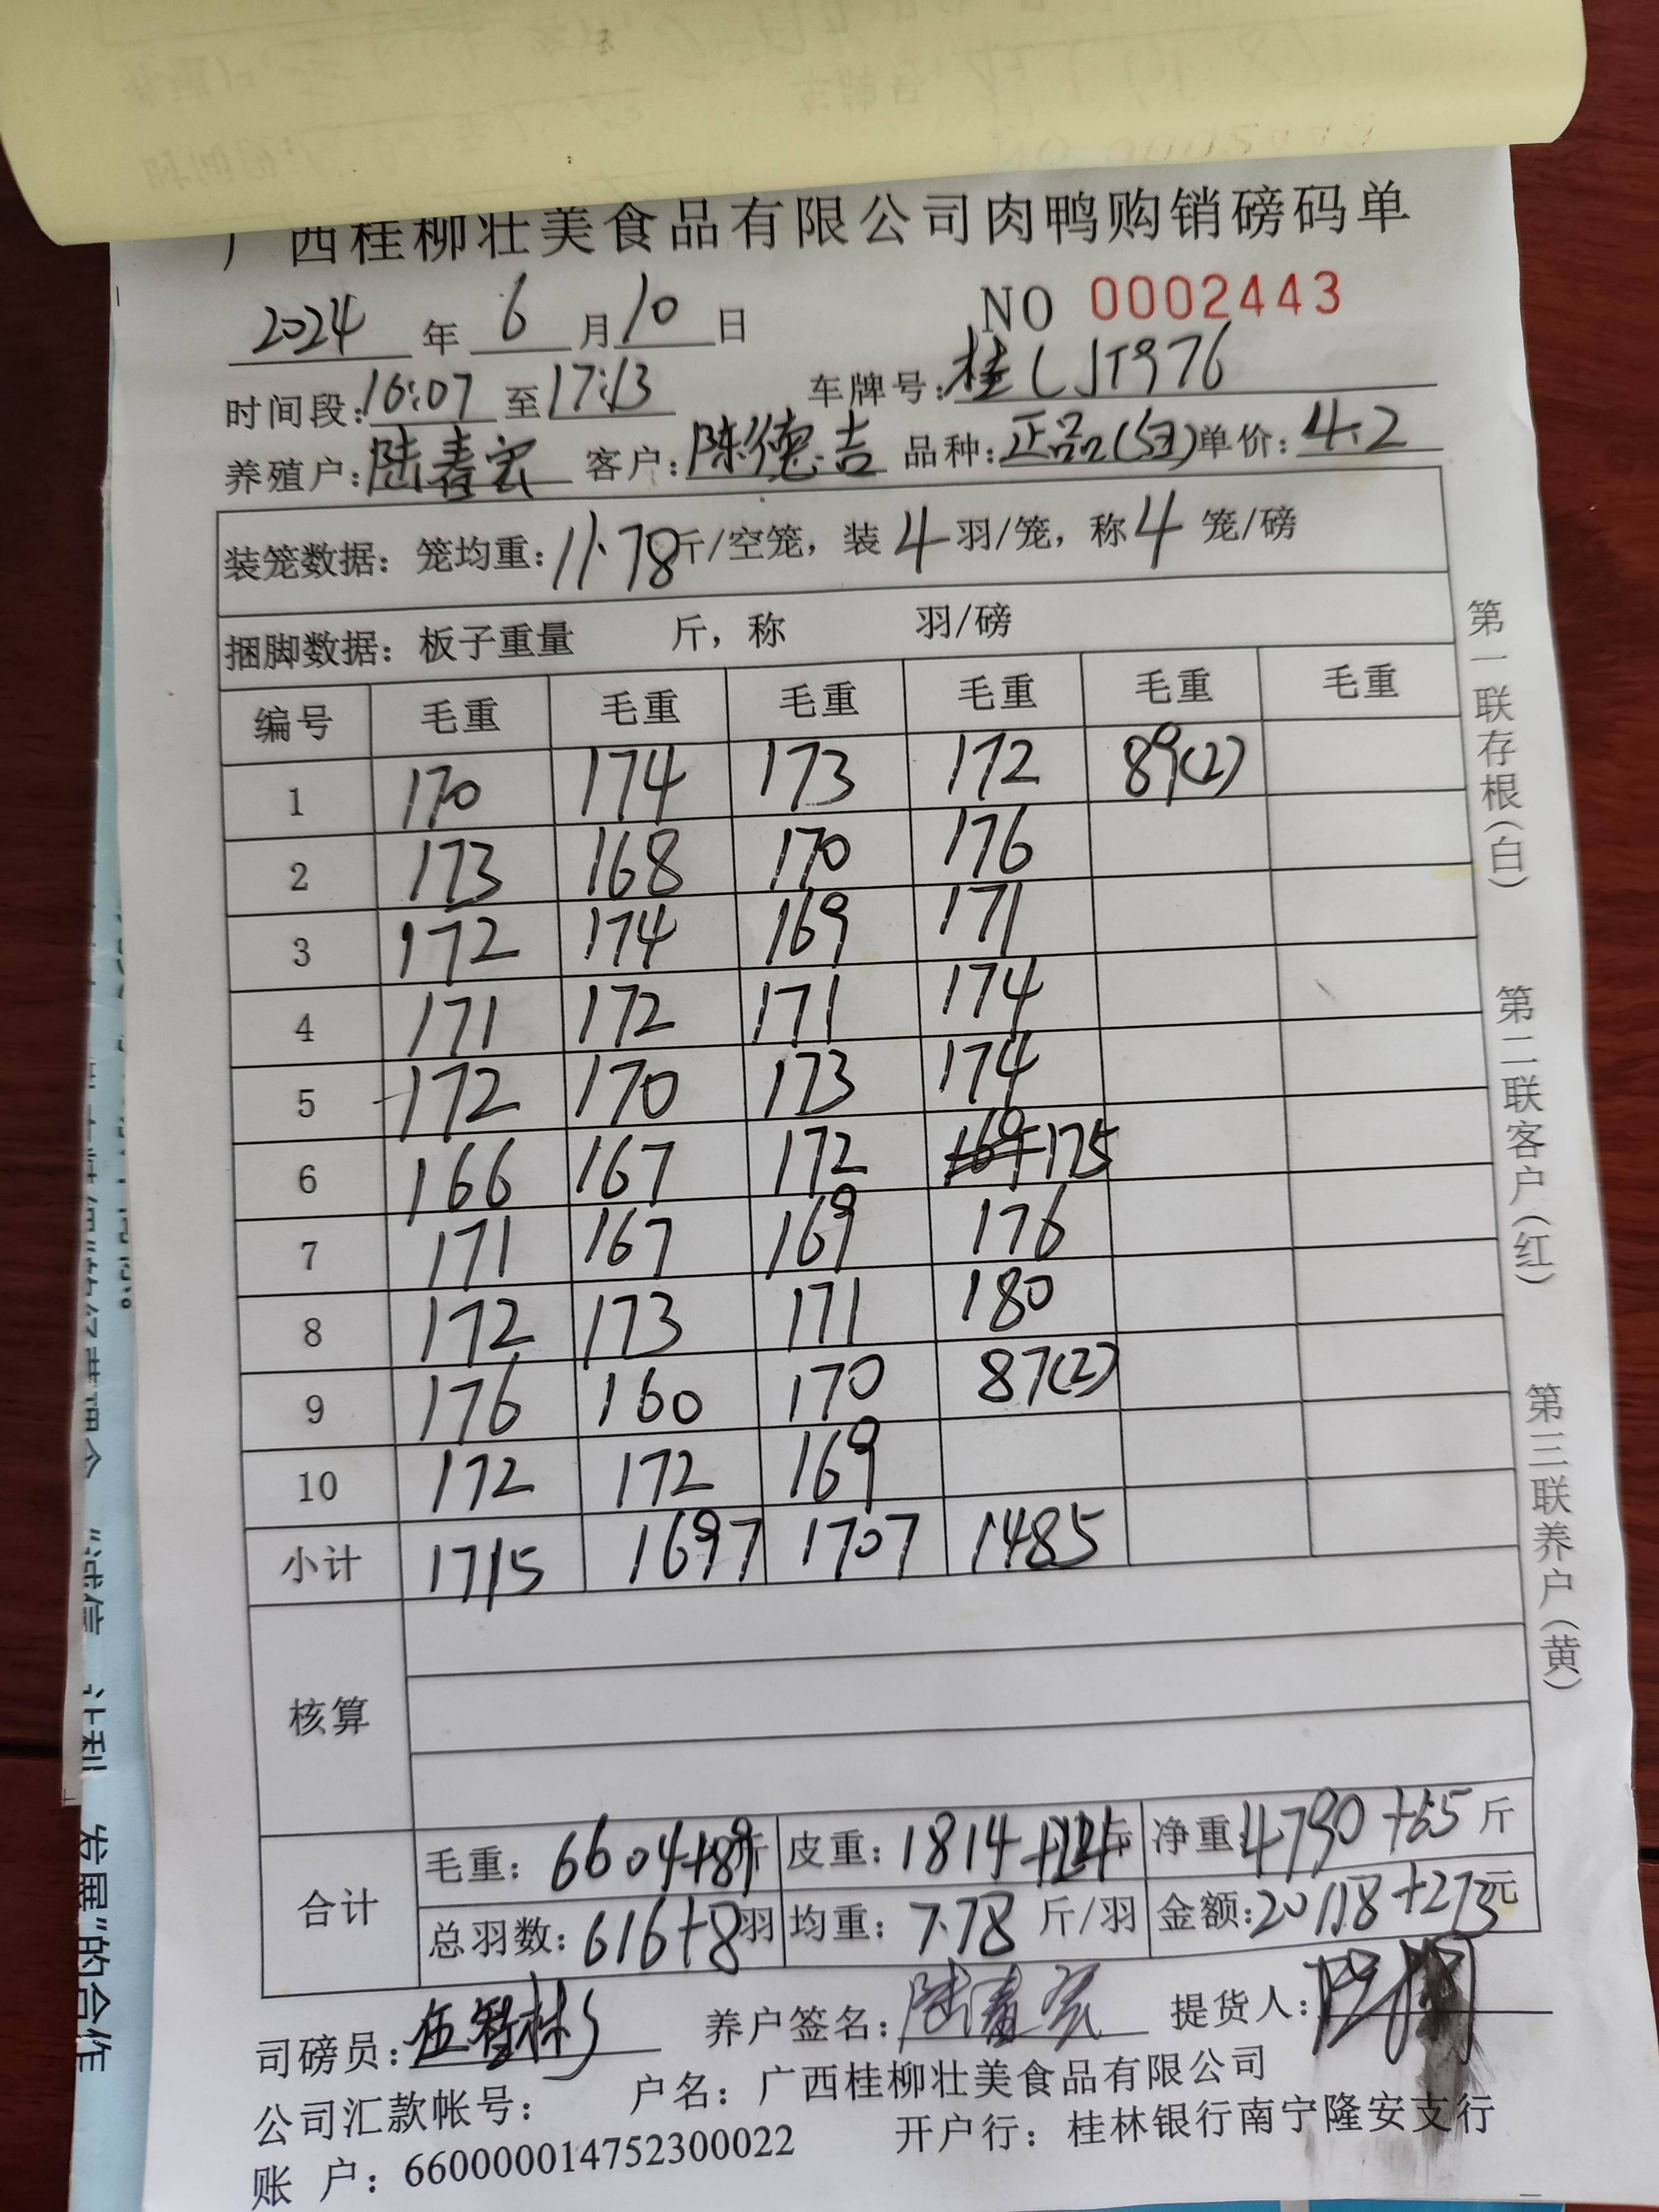 广西桂柳壮美食品有限公司肉鸭购销磅码单
2024 年 6 月 10 日 NO 0002443
时间段: 16:07 至 17:13 车牌号: 桂CJT976
养殖户: 陆春宏 客户: 陈德吉 品种: 正品(母) 单价: 4.2
装笼数据: 笼均重: 11.78 斤/空笼, 装 4 羽/笼, 称 4 笼/磅
捆脚数据: 板子重量 斤, 称 羽/磅
编号 毛重 毛重 毛重 毛重 毛重 毛重
1 170 174 173 172 89(2)
2 173 168 170 176
3 172 174 169 171
4 171 172 171 174
5 172 170 173 174
6 166 167 172 175
7 171 167 169 176
8 172 173 171 180
9 176 160 170 87(2)
10 172 172 169
小计 1715 1697 1707 1485
核算
合计 毛重: 6604+89 斤 皮重: 1814+24 斤 净重: 4790+65 斤
总羽数: 616+8 羽 均重: 7.78 斤/羽 金额: 20118+273 元
司磅员: 伍智彬 养户签名: 陆春宏 提货人:
公司汇款帐号: 户名: 广西桂柳壮美食品有限公司
账 户: 660000014752300022 开户行: 桂林银行南宁隆安支行
第一联存根(白) 第二联客户(红) 第三联养户(黄)
"诚信 让利 发展"的合作